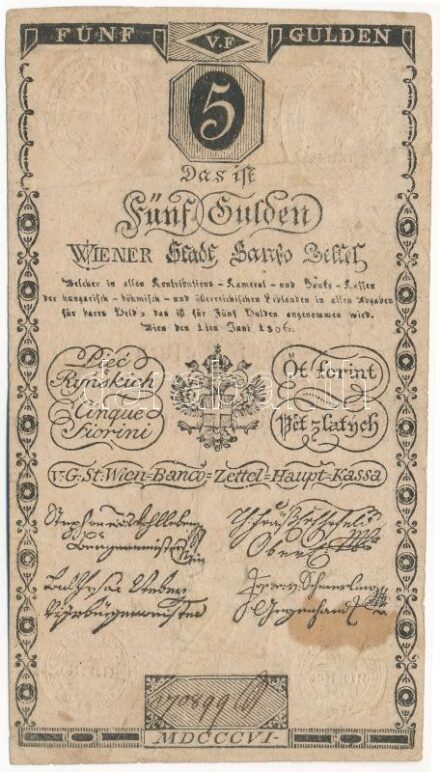 FÜNF V.F GULDEN
5
Das ist
Fünf Gulden
WIENER Stadt Banko Zettel
Welcher in allen Kontributions - Kameral - und Banko - Kassen
der hungarisch - böhmisch - und österreichischen Erblanden in allen Abgaben
für bares Geld, das ist für Fünf Gulden angenommen wird.
Wien den 1ten Juni 1806.
Pięć Ryńskich
Öt forint
Cinque Fiorini
Pět zlatych
V=G=St=Wien=Banco=Zettel=Haupt=Kassa
MDCCCVI